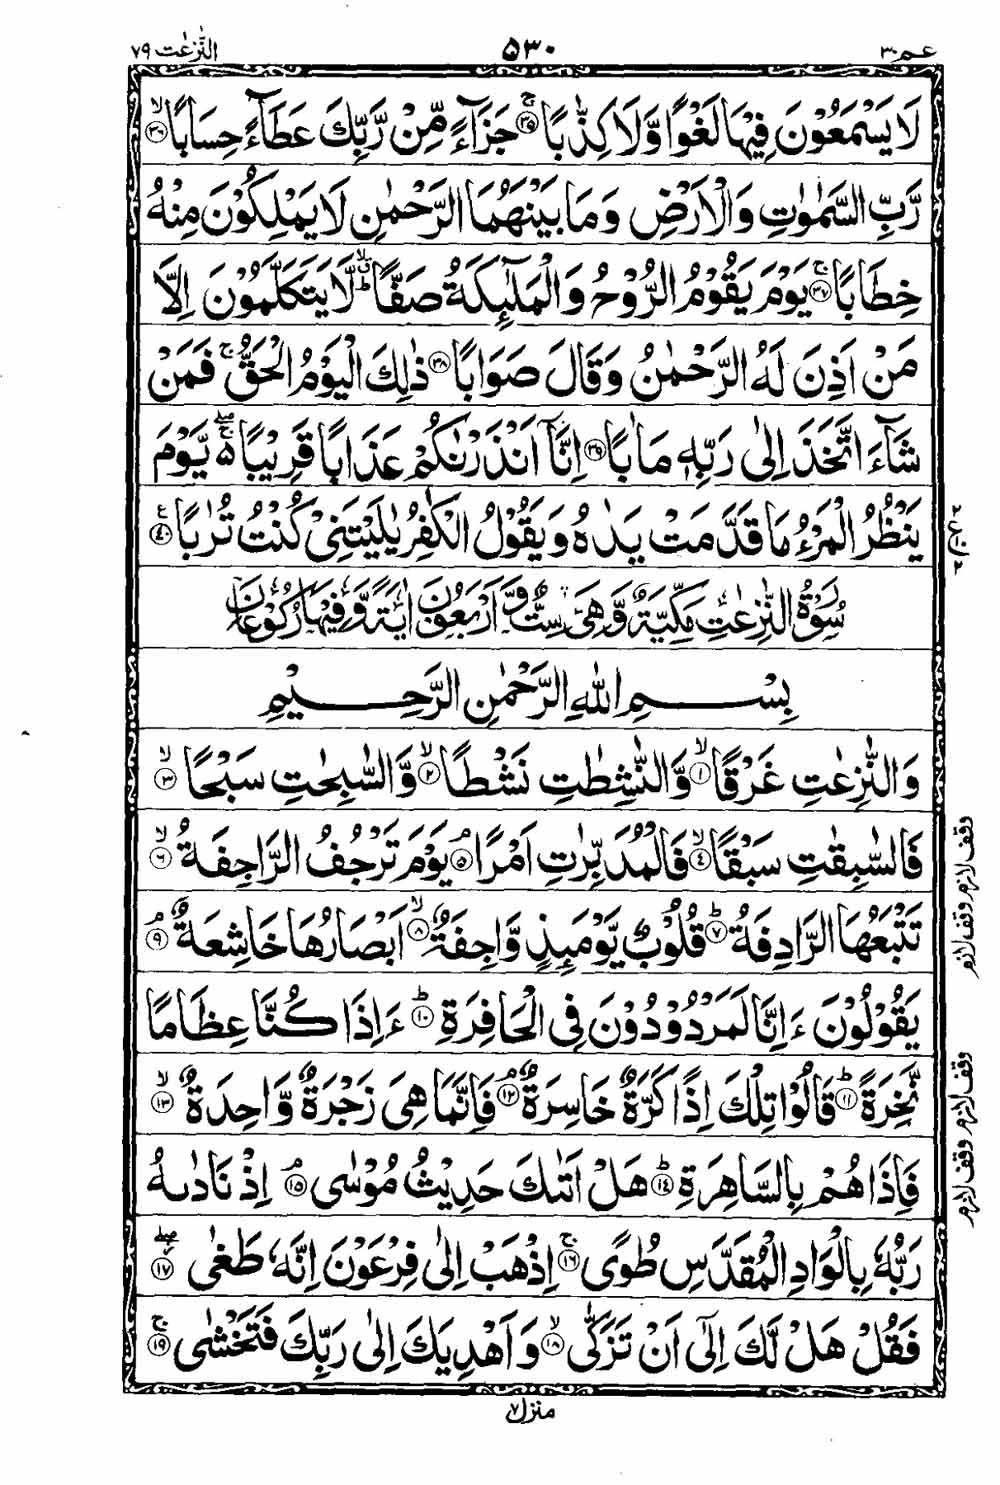 عم ٣٠ ٥٣٠ النّٰزعٰت ٧٩
لَا يَسْمَعُوْنَ فِيْهَا لَغْوًا وَّلَا كِذّٰبًا ۚ﴿٣٥﴾ جَزَآءً مِّنْ رَّبِّكَ عَطَآءً حِسَابًا ۙ﴿٣٦﴾
رَّبِّ السَّمٰوٰتِ وَالْاَرْضِ وَمَا بَيْنَهُمَا الرَّحْمٰنِ لَا يَمْلِكُوْنَ مِنْهُ
خِطَابًا ۚ﴿٣٧﴾ يَوْمَ يَقُوْمُ الرُّوْحُ وَالْمَلٰٓئِكَةُ صَفًّا ؕۙ لَّا يَتَكَلَّمُوْنَ اِلَّا
مَنْ اَذِنَ لَهُ الرَّحْمٰنُ وَقَالَ صَوَابًا ﴿٣٨﴾ ذٰلِكَ الْيَوْمُ الْحَقُّ ۚ فَمَنْ
شَآءَ اتَّخَذَ اِلٰى رَبِّهٖ مَاٰبًا ﴿٣٩﴾ اِنَّاۤ اَنْذَرْنٰكُمْ عَذَابًا قَرِيْبًا ۖۚ۬ يَّوْمَ
يَنْظُرُ الْمَرْءُ مَا قَدَّمَتْ يَدٰهُ وَيَقُوْلُ الْكٰفِرُ يٰلَيْتَنِيْ كُنْتُ تُرٰبًا ﴿٤٠﴾ ع
سُوْرَةُ النّٰزِعٰتِ مَكِّيَّةٌ وَّهِيَ سِتٌّ وَّاَرْبَعُوْنَ اٰيَةً وَّفِيْهَا رُكُوْعَانِ
بِسْمِ اللّٰهِ الرَّحْمٰنِ الرَّحِيْمِ
وَالنّٰزِعٰتِ غَرْقًا ۙ﴿١﴾ وَّالنّٰشِطٰتِ نَشْطًا ۙ﴿٢﴾ وَّالسّٰبِحٰتِ سَبْحًا ۙ﴿٣﴾
فَالسّٰبِقٰتِ سَبْقًا ۙ﴿٤﴾ فَالْمُدَبِّرٰتِ اَمْرًا ۘ﴿٥﴾ يَوْمَ تَرْجُفُ الرَّاجِفَةُ ۙ﴿٦﴾
وقف لازم
تَتْبَعُهَا الرَّادِفَةُ ؕ﴿٧﴾ قُلُوْبٌ يَّوْمَئِذٍ وَّاجِفَةٌ ۙ﴿٨﴾ اَبْصَارُهَا خَاشِعَةٌ ۘ﴿٩﴾
وقف لازم
يَقُوْلُوْنَ ءَاِنَّا لَمَرْدُوْدُوْنَ فِي الْحَافِرَةِ ؕ﴿١٠﴾ ءَاِذَا كُنَّا عِظَامًا
نَّخِرَةً ؕ﴿١١﴾ قَالُوْا تِلْكَ اِذًا كَرَّةٌ خَاسِرَةٌ ۘ﴿١٢﴾ فَاِنَّمَا هِيَ زَجْرَةٌ وَّاحِدَةٌ ۙ﴿١٣﴾
وقف لازم
فَاِذَا هُمْ بِالسَّاهِرَةِ ؕ﴿١٤﴾ هَلْ اَتٰىكَ حَدِيْثُ مُوْسٰى ۘ﴿١٥﴾ اِذْ نَادٰىهُ
وقف لازم
رَبُّهٗ بِالْوَادِ الْمُقَدَّسِ طُوًى ۚ﴿١٦﴾ اِذْهَبْ اِلٰى فِرْعَوْنَ اِنَّهٗ طَغٰى ۖ﴿١٧﴾
فَقُلْ هَلْ لَّكَ اِلٰۤى اَنْ تَزَكّٰى ۙ﴿١٨﴾ وَاَهْدِيَكَ اِلٰى رَبِّكَ فَتَخْشٰى ۚ﴿١٩﴾
منزل ٧